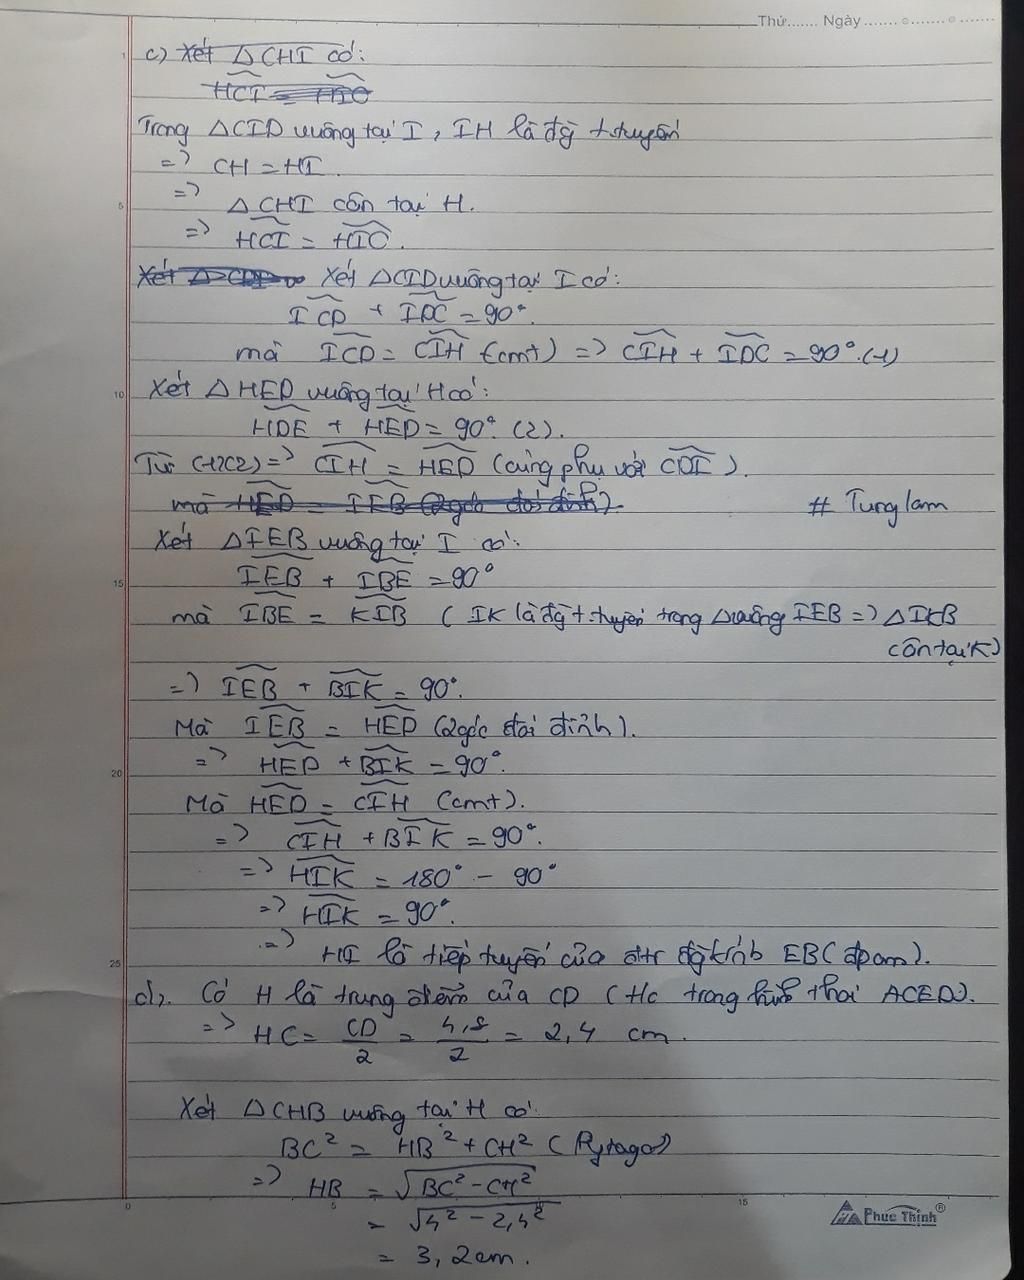 Thứ....... Ngày.......
c) Xét △CHI có:
HCI = HIC
Trong △CID vuông tại I, IH là đg t.tuyến
=> CH = HI.
=> △CHI cân tại H.
=> HCI = HIC.
Xét △CDI Xét △CID vuông tại I có:
ICD + IDC = 90°.
mà ICD = CIH (cmt) => CIH + IDC = 90°. (1)
Xét △HED vuông tại H có:
HDE + HED = 90°. (2).
Từ (1)(2) => CIH = HED (cùng phụ với CDI).
mà HED = IEB (2 góc đối đỉnh).
# Tunglam
Xét △IEB vuông tại I có:
IEB + IBE = 90°
mà IBE = KIB (IK là đg t.tuyến trong △vuông IEB => △IKB
cân tại K)
=> IEB + BIK = 90°.
Mà IEB = HED (2 góc đối đỉnh).
=> HED + BIK = 90°.
Mà HED = CIH (cmt).
=> CIH + BIK = 90°.
=> HIK = 180° - 90°
=> HIK = 90°.
=> HI là tiếp tuyến của đtr đg kính EB (đpcm).
d). Có H là trung điểm của CD (Hc trong hình thoi ACED).
=> HC = CD/2 = 4,8/2 = 2,4 cm.
Xét △CHB vuông tại H có:
BC² = HB² + CH² (Pytago)
=> HB = √BC² - CH²
= √4² - 2,4²
= 3,2cm.
Phúc Thịnh®